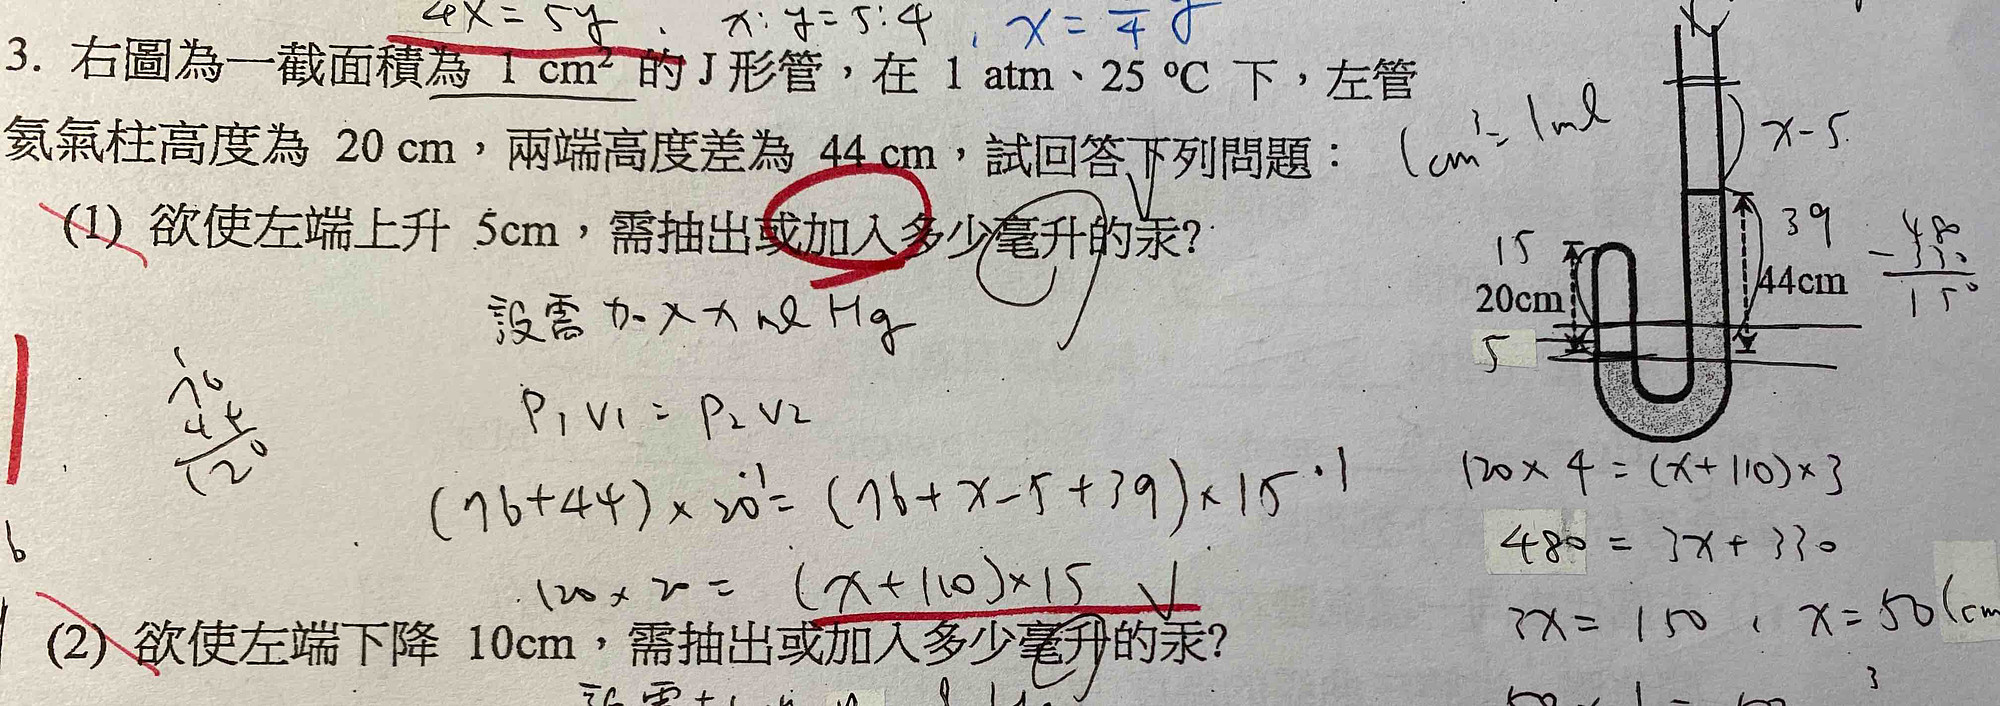 4x = 5y , x : y = 5 : 4 , x =
3. 右圖為一截面積為 1 cm² 的 J 形管，在 1 atm、25 ºC 下，左管
氦氣柱高度為 20 cm，兩端高度差為 44 cm，試回答下列問題：
1 cm³ = 1 ml
(1) 欲使左端上升 5cm，需抽出或加入多少毫升的汞?
設需加入 x ml Hg
P₁V₁ = P₂V₂
76
44
120
(76+44) × 20·1 = (76+x-5+39) × 15·1
120 × 20 = (x+110)×15
(2) 欲使左端下降 10cm，需抽出或加入多少毫升的汞?
x-5
15
20cm
5
39
44cm
480
- 330
150
120 × 4 = (x+110) × 3
480 = 3x + 330
3x = 150 , x = 50 (cm